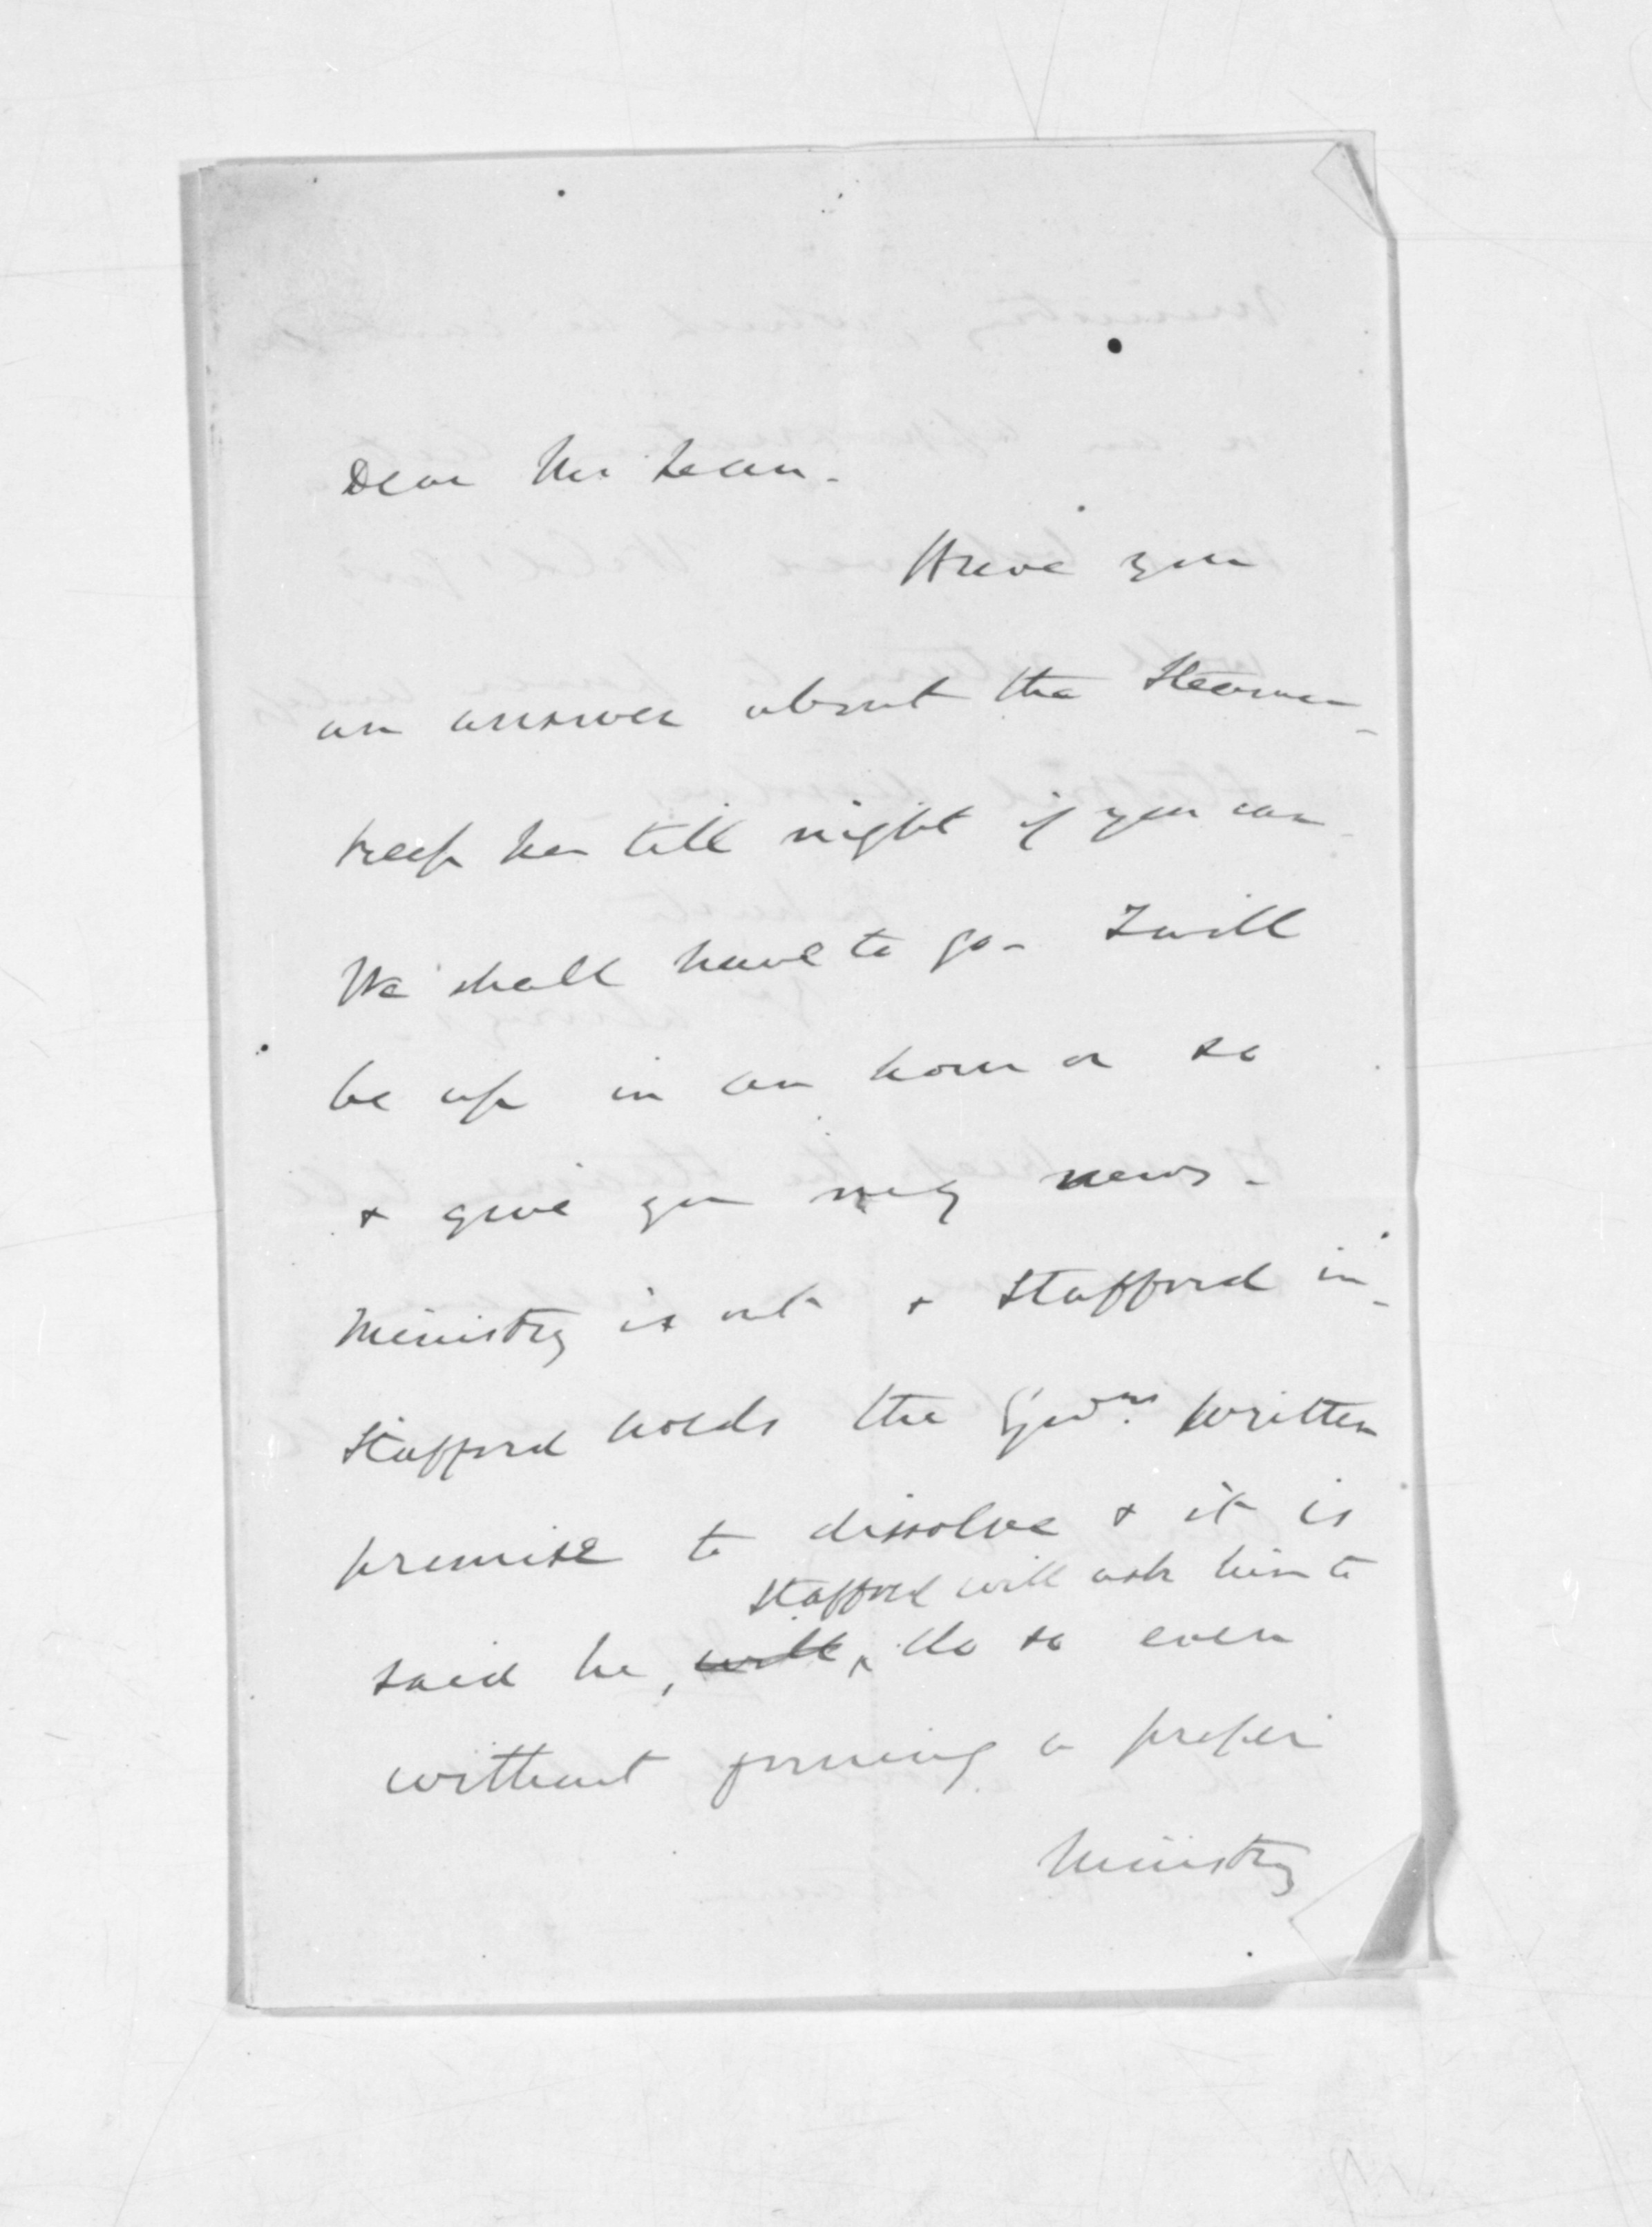 Dear McLean.
Have you
an answer about the Steamer -
Keep her till night if you can
We shall have to go - I will
be up in an hour or so
& give you my news -
Ministry is out & Stafford in -
Stafford holds the Govrs. written
promise to dissolve & it is
Stafford will ask him to
said he, will do so even
without forming a proper
Ministry